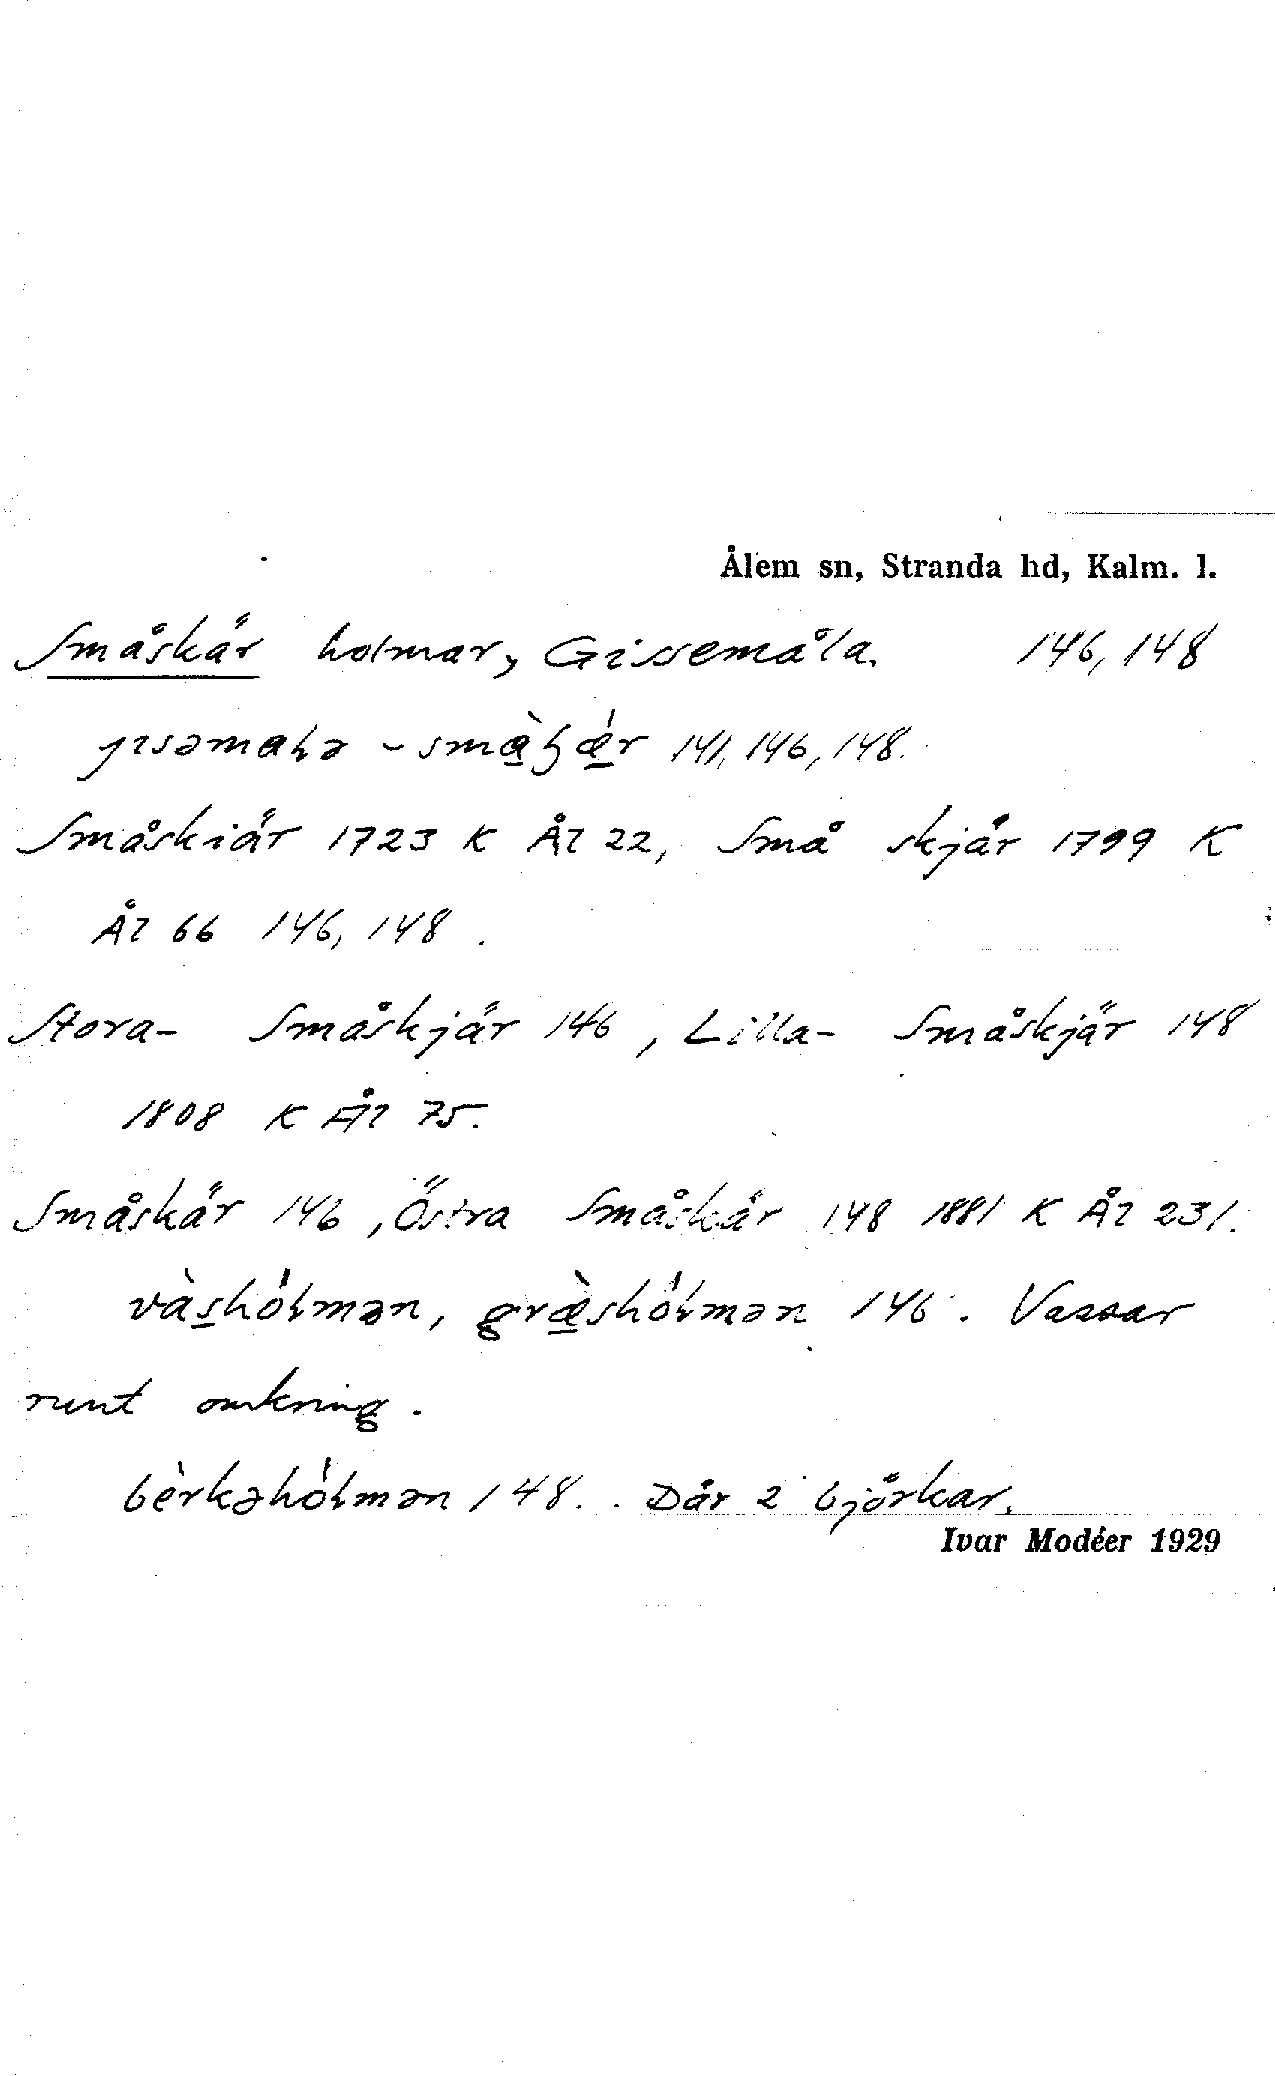 Ålem sn, Stranda hd, Kalm. l.
Småskär holmar, Gissemåla. 146, 148
141, 146, 148.
Småskiär 1723 K Ål 22, Små skjär 1799 K
Ål 66 146, 148.
Stora- Småskjär 146, Lilla- Småskjär 148
1808 K Ål 75.
Småskär 146, Östra Småskär 148 1881 K Ål 231.
vàshólmən, græ̀shólmən 146. Vassar
runt omkring.
bèrkəhólmən 148. Där 2 björkar.
Ivar Modéer 1929